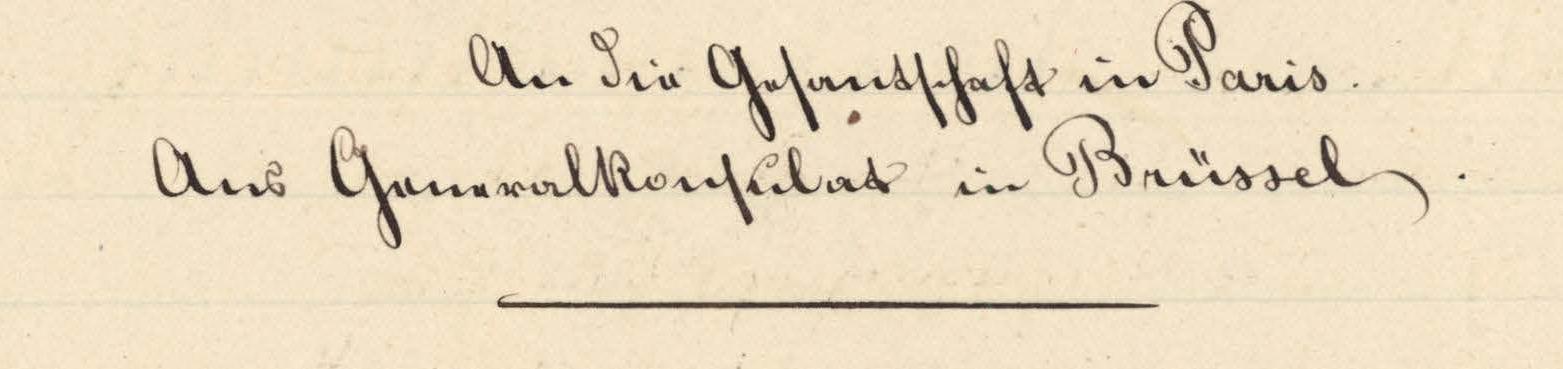 An die Gesantschaft in Paris.
Ans Generalkonsulat in Brüssel.